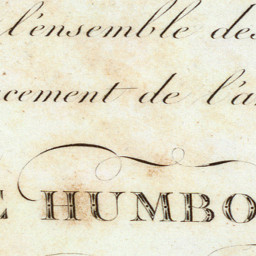 l'ensemble des
cement de l'a
E HUMBO